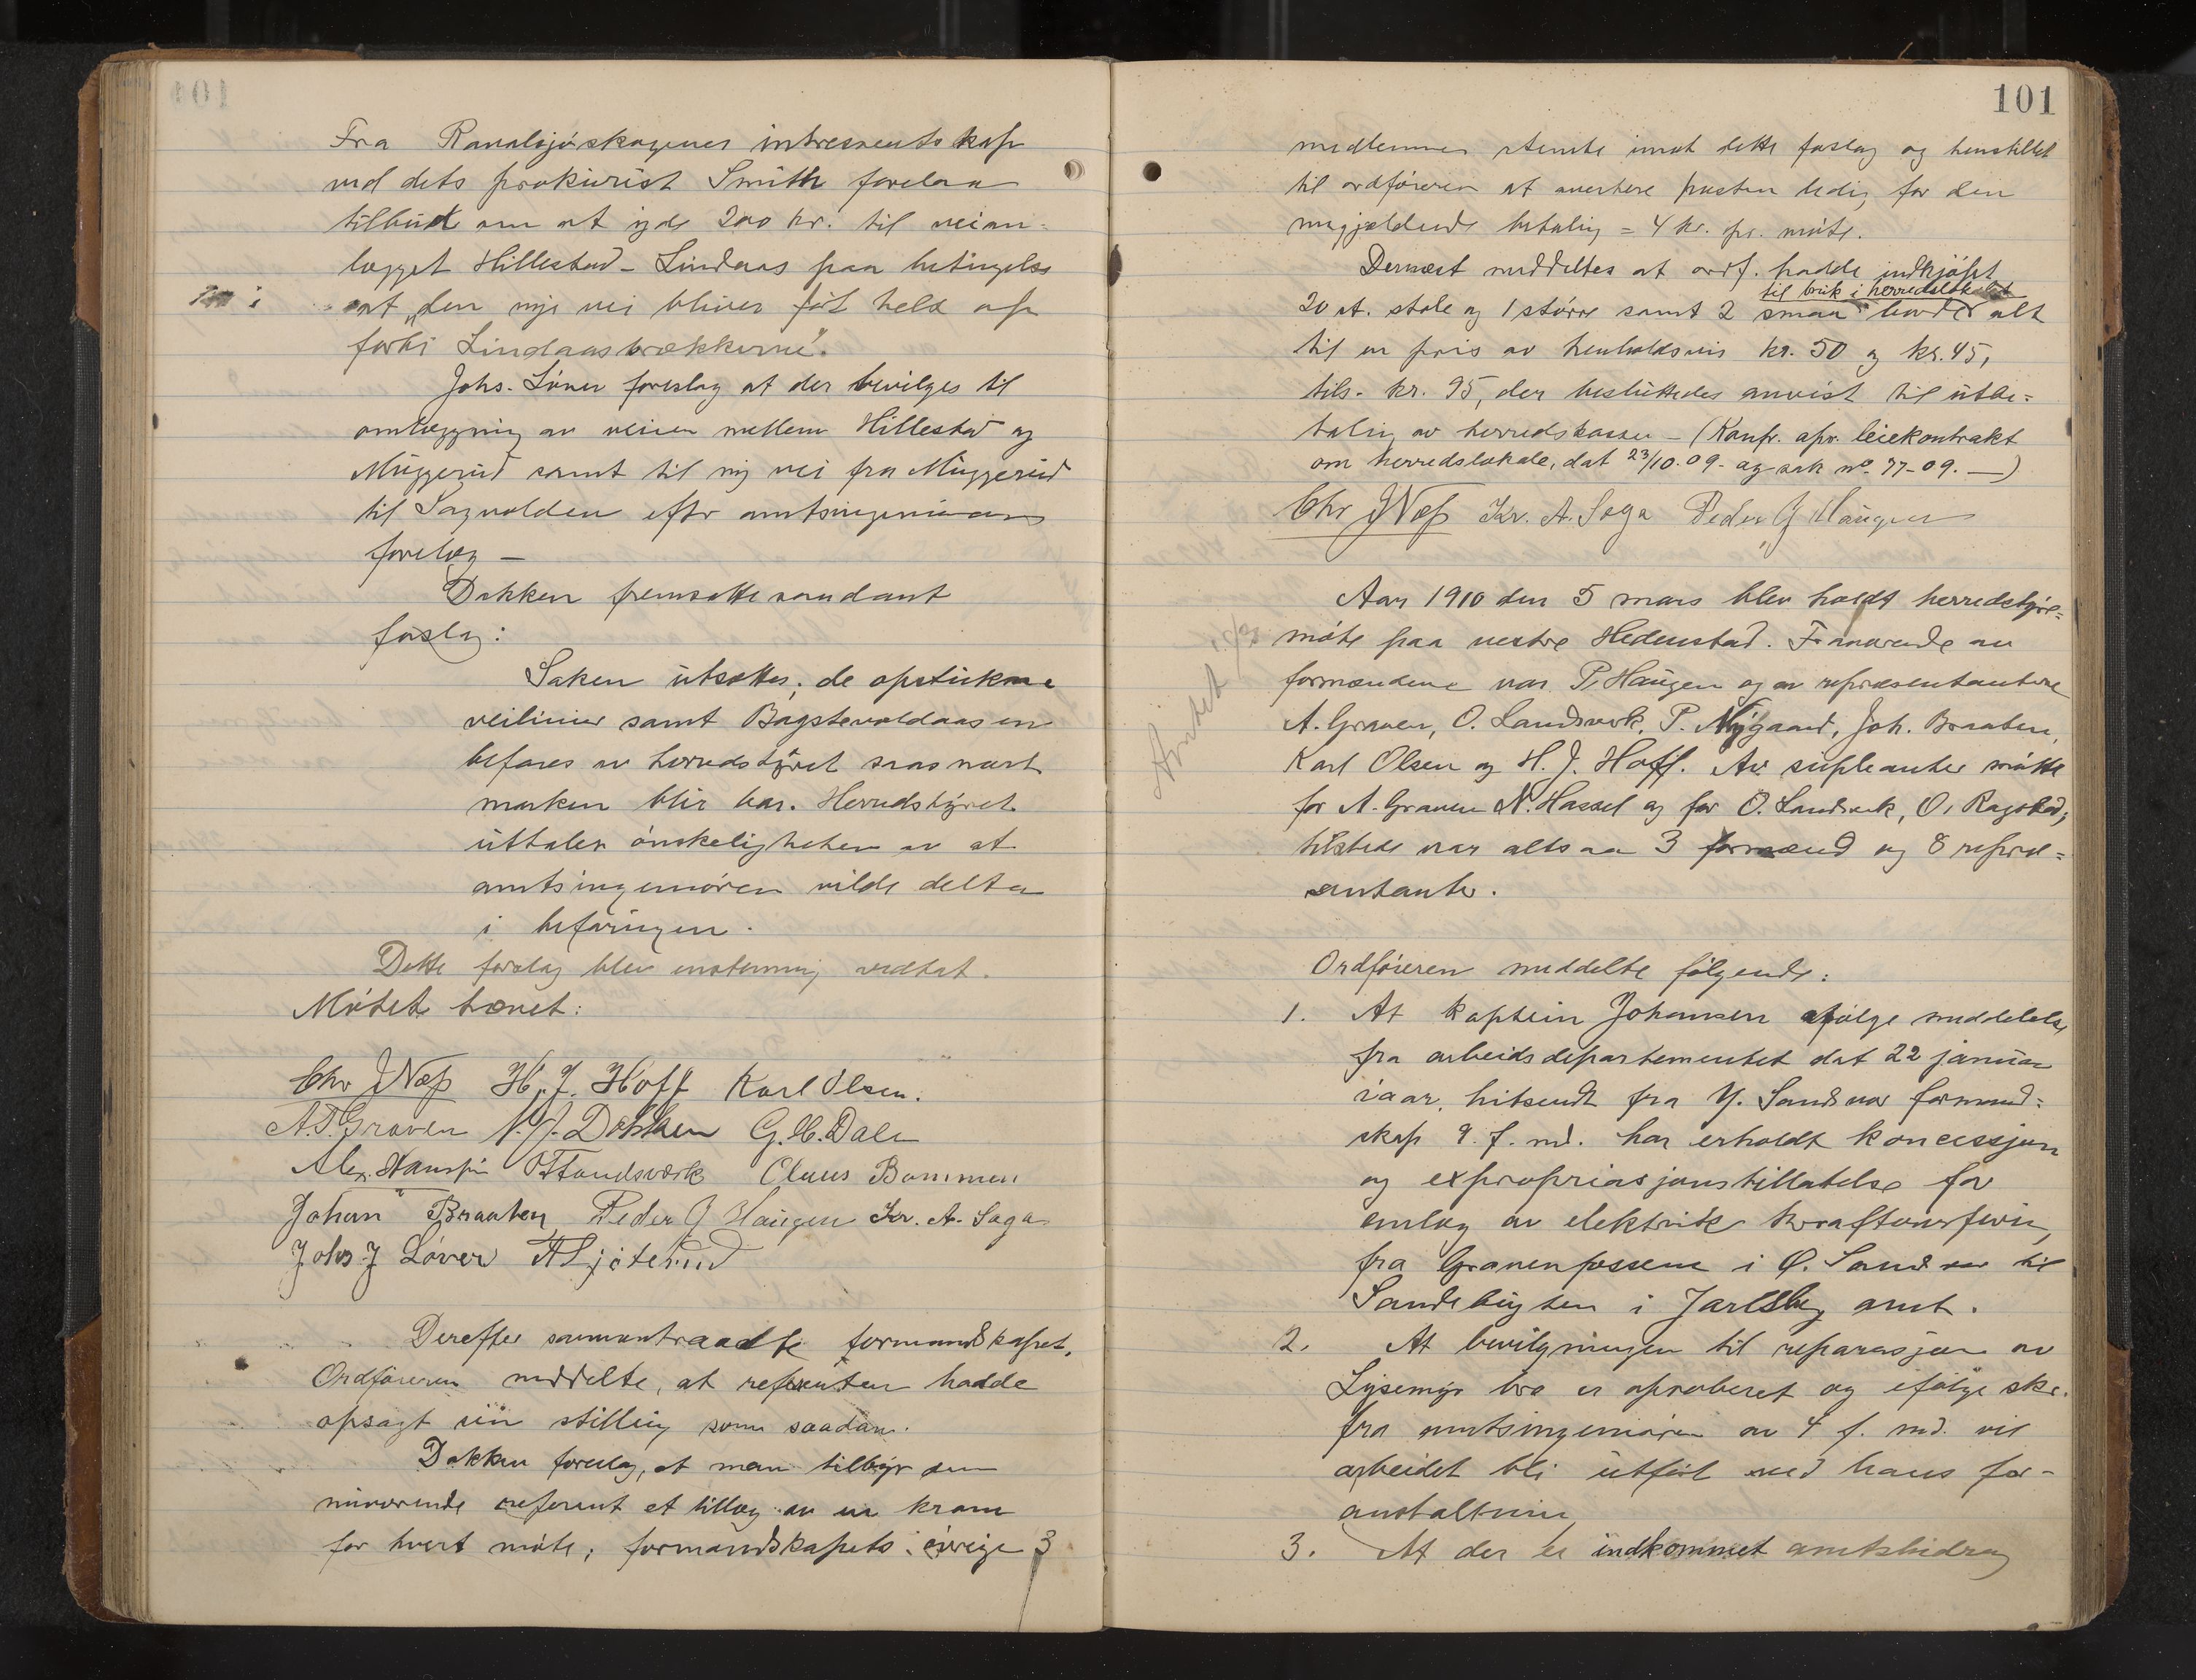 Fra Ravalsjøskogenes intressentskap
ved dets prokurist Smith forelaa
tilbud om at yde 200 kr. til veian-
lægget Hillestad - Lindaas paa betingelse
at "den nye vei bliverført helt op
forbi Lindaasbrækkerne".
Johs. Løver foreslog at der bevilges til
omlægning av veien mellem Hillestad og
Muggerud samt til ny vei fra Muggerud
til Sagvolden efter amtsingeniørens
forelæg -
Dokken fremsatte saadant
forslag:
Saken utsættes; de opstukne
veilinier samt Bagstevoldaasen
befares av herredstyret saasnart
marken blir bar. Herredstyret
uttaler ønskeligheten av at
amtsingeniøren vilde delta
i befaringen.
Dette forslag blev enstemmig vedtat.
Møtet hævet:
Chr J Næss H. J. Hoff Karl Olsen.
A. T. Graven N. J. Dokken G. H. Dale
Alex. Hansen O Landsværk Claus Bommen
Johan Braaten Peder G Haugen Kr. A. Saga
Johs J Løver
Derefter sammentraadte formandskapet.
Ordføreren meddelte, at referenten hadde
opsagt sin stilling som saadan.
Dokken foreslog, at man tilbyr den
nuværende referent et tillæg av en krone
for hvert møte; formandskapets øvrige 3
101
medlemmer stemte imot dette forslag og henstillet
til ordføreren at avertere posten ledig for den
nugjældende betaling = 4 kr. pr. møte.
Dernæst meddeltes at ordf. hadde indkjøpt
til bruk i herredslokalet
20 st. stole og 1 større samt 2 smaa border alt
til en pris av henholdsvis kr. 50 og kr. 45,
tils. kr. 95, der besluttedes anvist til utbe=
taling av herredskassen - (Konfr. opr. leiekontrakt
om herredslokale, dat 23/10.09. og sak no. 77-09. -)
Chr J Næss Kr. A. Saga Peder G Haugen
Aar 1910 den 5 mars blev holdt herredstyre=
møte paa vestre Hedenstad. Fraværende av
formændene var P. Haugen og av repræsentantene
A. Graven, O. Landsverk, P. Nygaard, Joh. Braaten,
Karl Olsen og H. J. Hoff. Av supleanter møtte
for A. Graven N. Hassel og for O. Landsverk, O. Ragstad;
tilstede var altsaa 3 formænd og 8 repræ=
sentanter.
Ordføreren meddelte følgende:
1. At kaptein Johansen ifølge meddelelse
fra arbeidsdepartementet dat 22 januar
iaar, hitsendt fra Y. Sandsvær formand=
skap 9. f. md. har erholdt koncessjon
og expropriasjonstillatelse for
anlæg av elektrisk kraftoverføring
fra Gravenfossene i Ø. Sandsvær til
Sandebugten i Jarlsberg amt.
2. At bevilgningen til reparasjon av
Lysemyr bro er aproberet og ifølge skr.
fra amtsingeniøren av 4 f. md. vil
arbeidet bli utført ved hans for-
anstaltning
3. At der er indkommet amtsbidrag